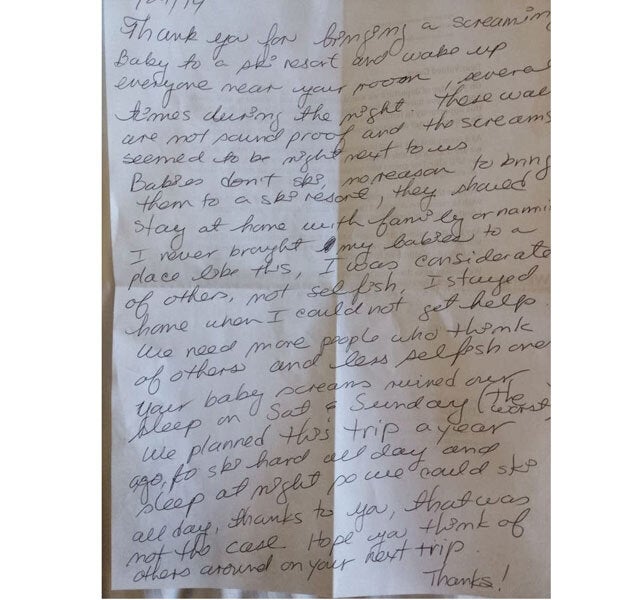 Thank ya for bringing a screamin
Baby to a ski resort and wake up
everyone near your room, severa
times during the night. These wal
are not sound proof and the screams
seemed to be right next to us
Babies don't ski, no reason to bring
them to a ski resort, they should
stay at home with family or nanni
I never brought my babies to a
place like this, I was considerate
of others, not selfish, I stayed
home when I could not get help.
We need more people who think
of others and less selfish one
your baby screams ruined our
sleep on Sat & Sunday (the worst
We planned this trip a year
ago, to ski hard all day and
sleep at night so we could ski
all day, thanks to ya, that was
not the case. Hope ya think of
others around on your next trip.
Thanks!